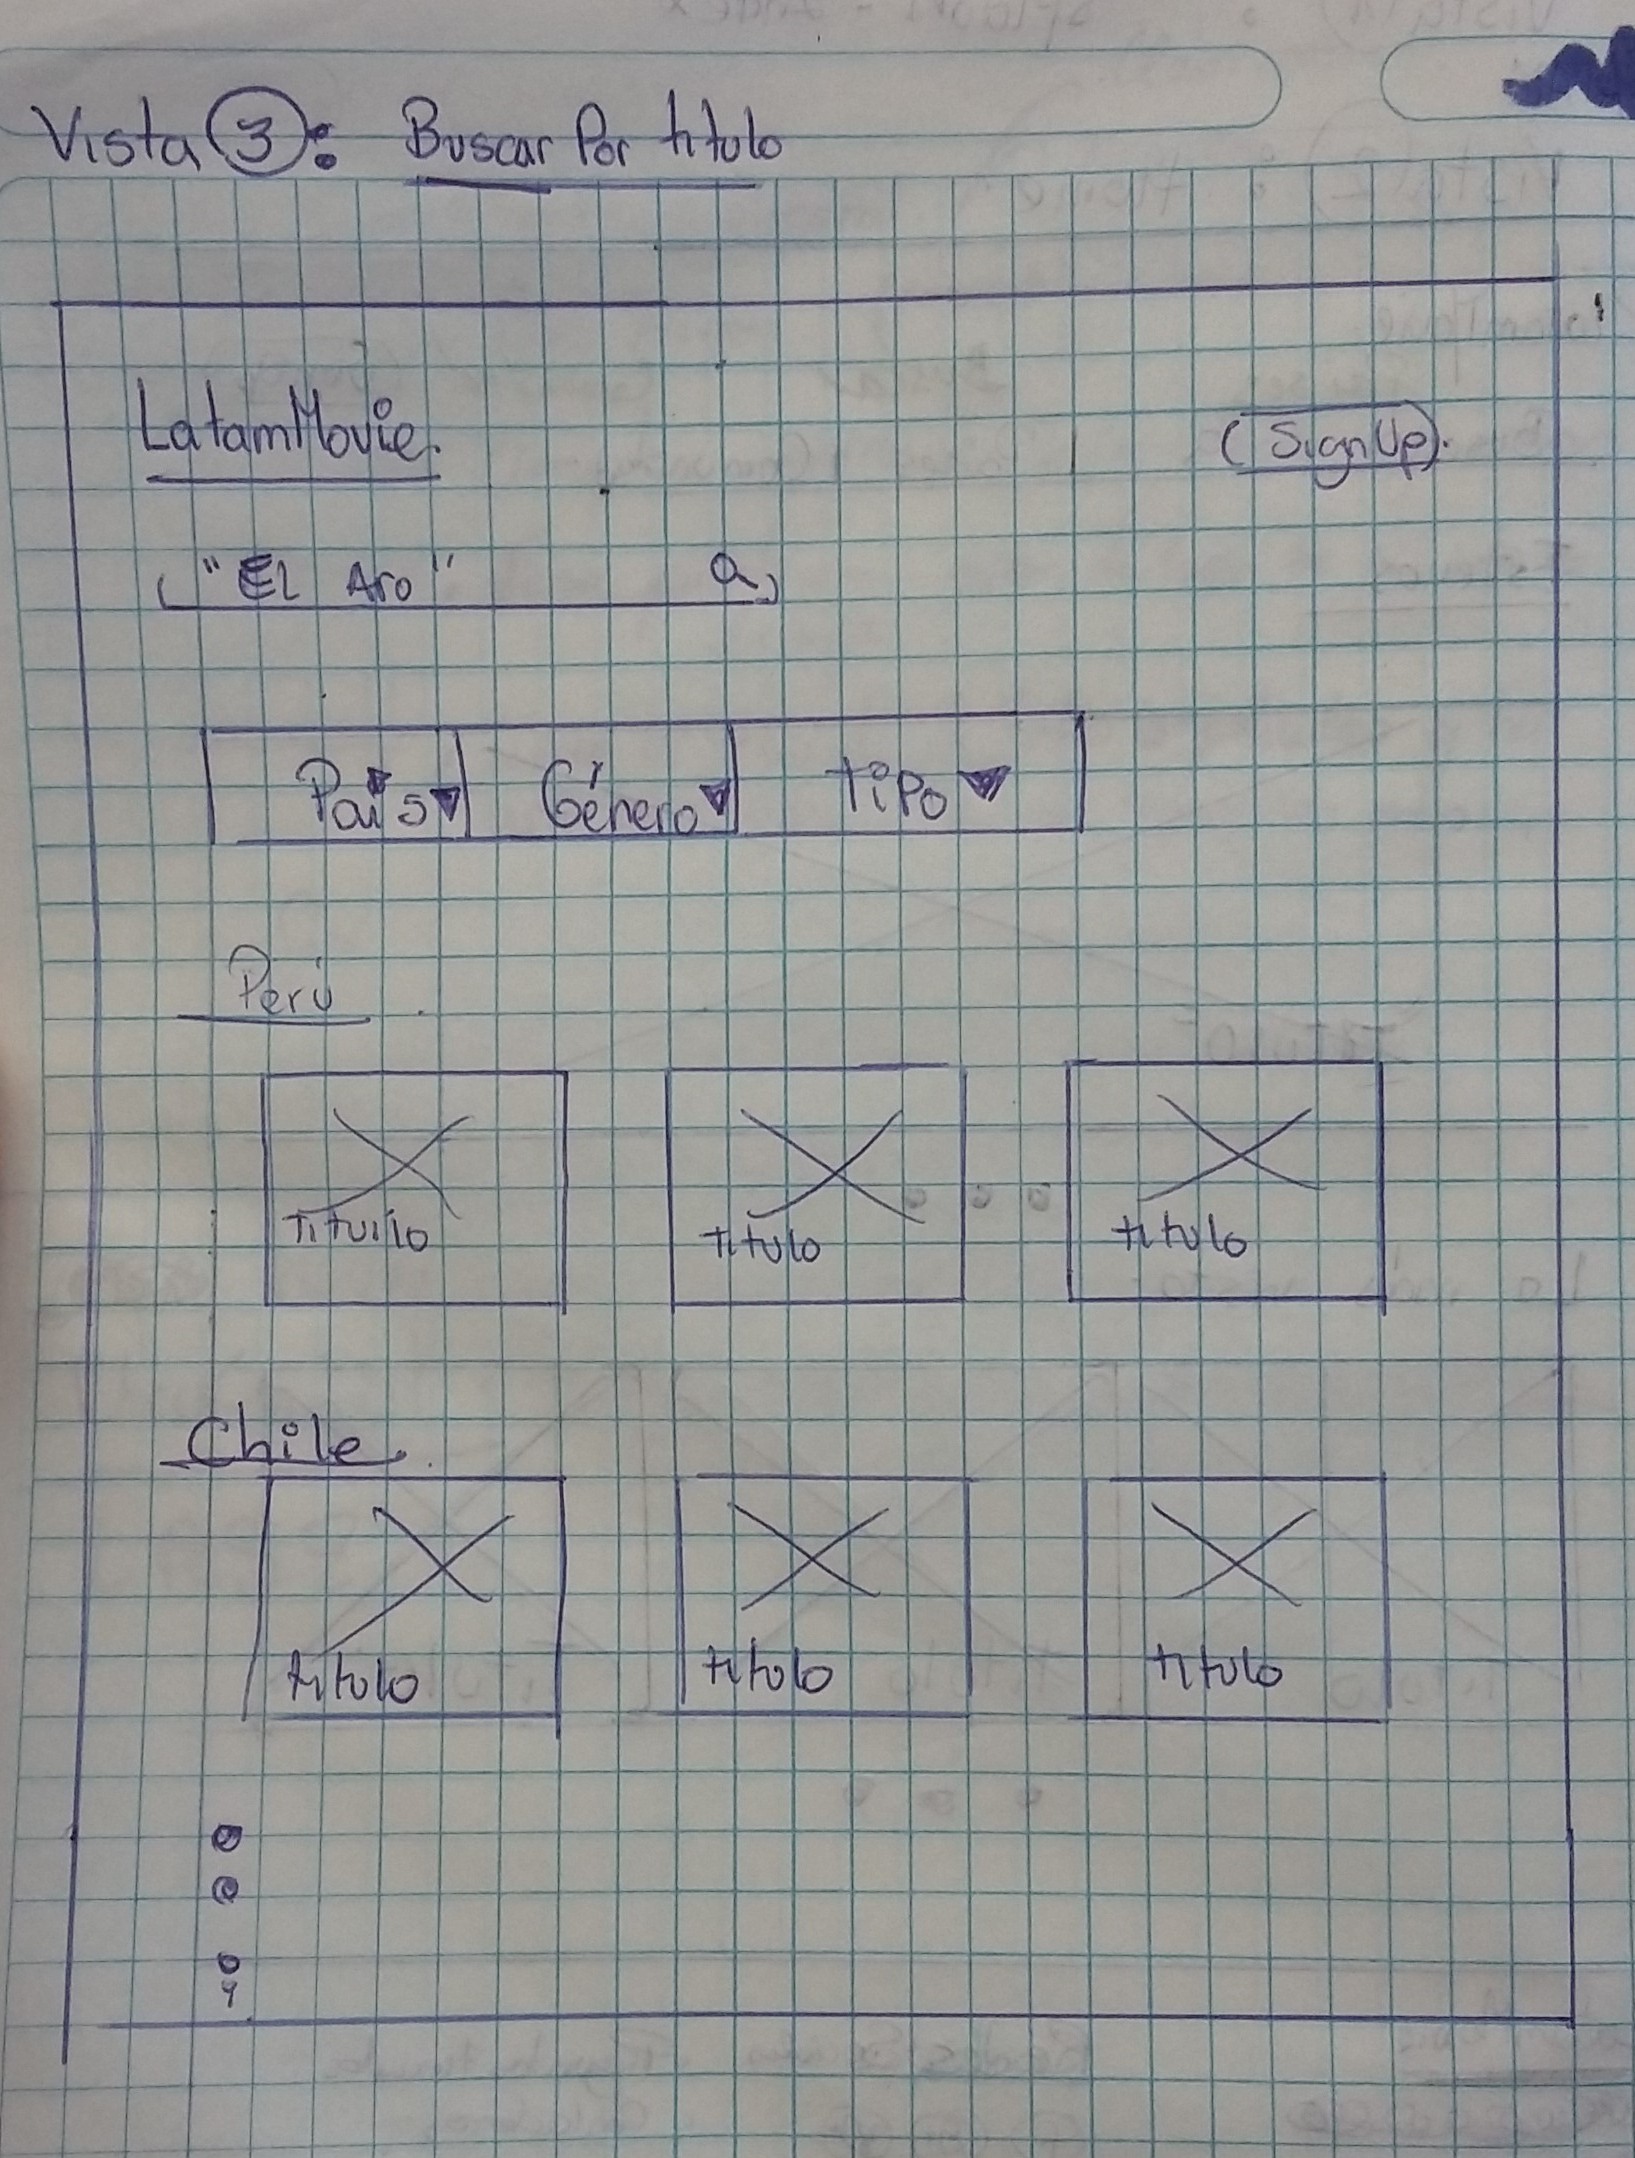 Vista 3: Buscar Por titulo
LatamMovie.
(SignUp).
"El Aro"
País Género tipo
Perú
Titulo titulo titulo
Chile
titulo titulo titulo